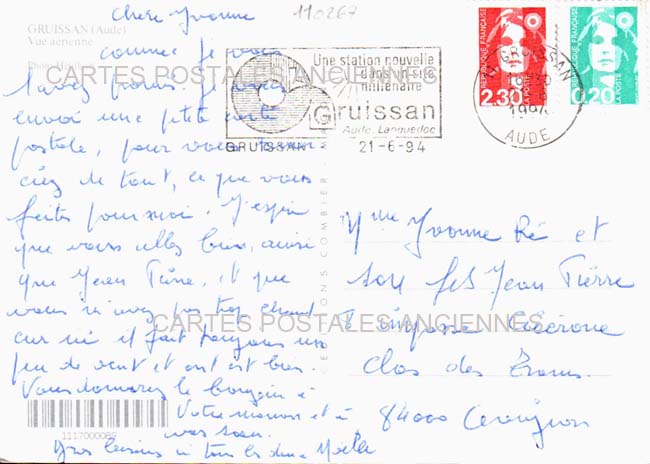 GRUISSAN (Aude)
Vue aérienne
110267
Chère Yvonne
comme je vous
l'avez promis. Je vous
envoi une petite carte
postale, pour vous
ciez de tout, ce que vous
faites pour moi. J'espère
que vous allez bien, ainsi
que Jean Pierre, et que
vous n'avez pas trop chaud
car ici il fait toujours un
peu de vent et on est bien.
Vous donnerez le bonjour à
Votre maman et à
Gros baisers à tous les deux
CARTES POSTALES ANCIENNES
CARTES POSTALES ANCIENNES
1117000065
GRUISSAN
Une station nouvelle
dans un site
millénaire
Gruissan
Aude-Languedoc
21-6-94
GRUISSAN
AUDE
REPUBLIQUE FRANÇAISE
2.30
LA POSTE
REPUBLIQUE FRANÇAISE
0,20
LA POSTE
Mme Yvonne Ré et
son fils Jean Pierre
2 impasse
Clos des
84000 Avignon